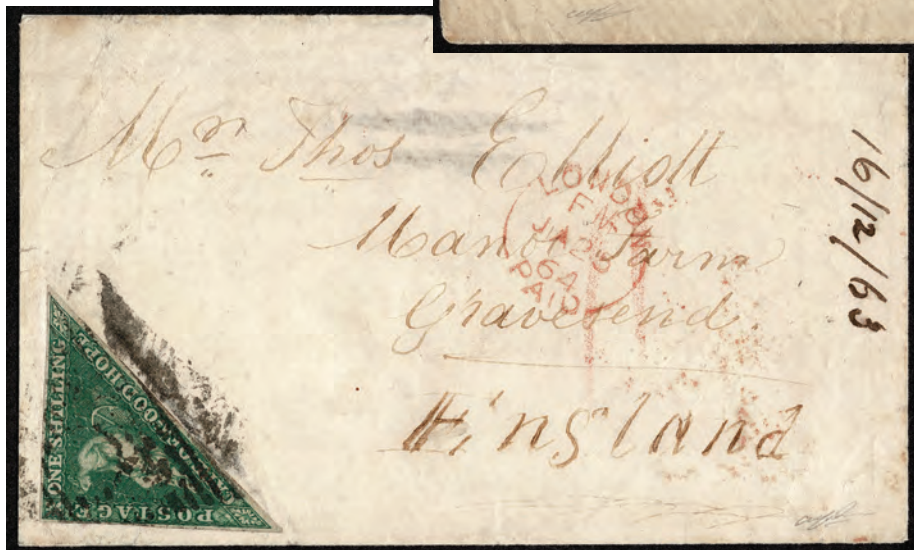 Mr Thos Elliott
Manor Farm
Gravesend
England
16/12/63
LONDON
JA 26
64
PAID
ONE SHILLING
CAPE OF GOOD HOPE
POSTAGE